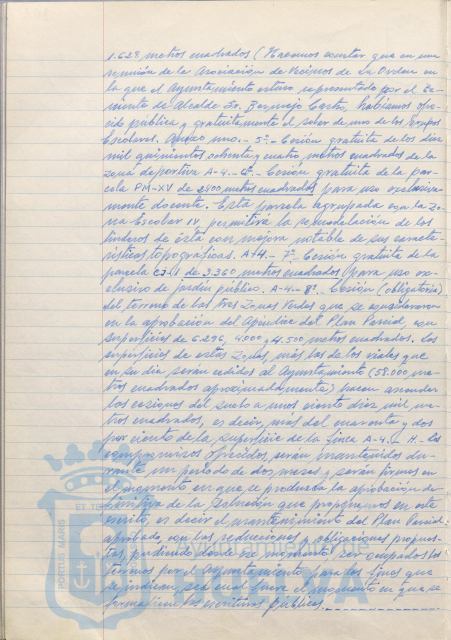 1.628 metros cuadrados (Hacemos constar que en una
reunión de la Asociación de Vecinos de La Orden en
la que el Ayuntamiento estuvo representado por el Te-
niente de Alcalde Sr. Bermejo Castro, habíamos ofre-
cido pública y gratuitamente el solar de uno de los Grupos
Escolares. Anexo uno.- 5º.- Cesión gratuita de los diez
mil quinientos ochenta y cuatro metros cuadrados de la
zona deportiva A-4.- 6º.- Cesión gratuita de la par-
cela PM-XV de 2.400 metros cuadrados para uso exclusiva-
mente docente. Esta parcela agrupada con la Zo-
na Escolar IV permitirá la remodelación de los
linderos de ésta con mejora notable de sus caracte-
rísticas topográficas. A-4.- 7º.- Cesión gratuita de la
parcela de 3.360 metros cuadrados para uso ex-
clusivo de jardín público. A-4.- 8º.- Cesión (obligatoria)
del terreno de las tres Zonas Verdes que se consideraron
en la aprobación del Apéndice del Plan Parcial, con
superficies de 6.296, 4.000 y 4.500 metros cuadrados. Las
superficies de estas Zonas, más las de los viales que
en su día serán cedidos al Ayuntamiento (58.000 me-
tros cuadrados aproximadamente) hacen ascender
las cesiones del suelo a unos ciento diez mil me-
tros cuadrados, es decir, más del cuarenta y dos
por ciento de la superficie de la finca A-4.- H.- Los
compromisos ofrecidos, serán mantenidos du-
rante un período de dos meses y serán firmes en
el momento en que se produzca la aprobación de-
finitiva de la solución que proponemos en este
escrito, es decir el mantenimiento del Plan Parcial
aprobado, con las reducciones y obligaciones propues-
tas, pudiendo desde ese momento ser ocupados los
terrenos por el Ayuntamiento para los fines que
se indican, sea cual fuere el momento en que se
formalicen las escrituras públicas.
PORTUS MARIS
ET TE